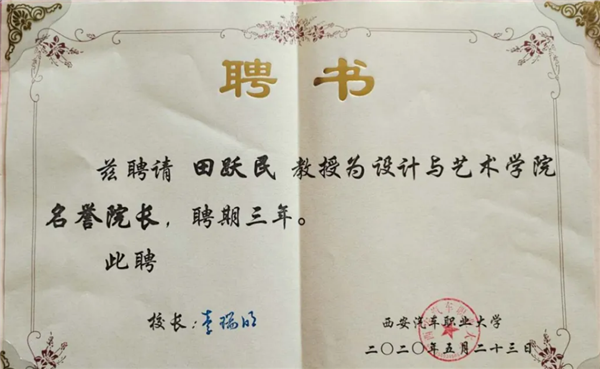 聘书
兹聘请 田跃民 教授为设计与艺术学院
名誉院长，聘期三年。
此聘
校长：李瑞明
西安汽车职业大学
二〇二〇年五月二十三日